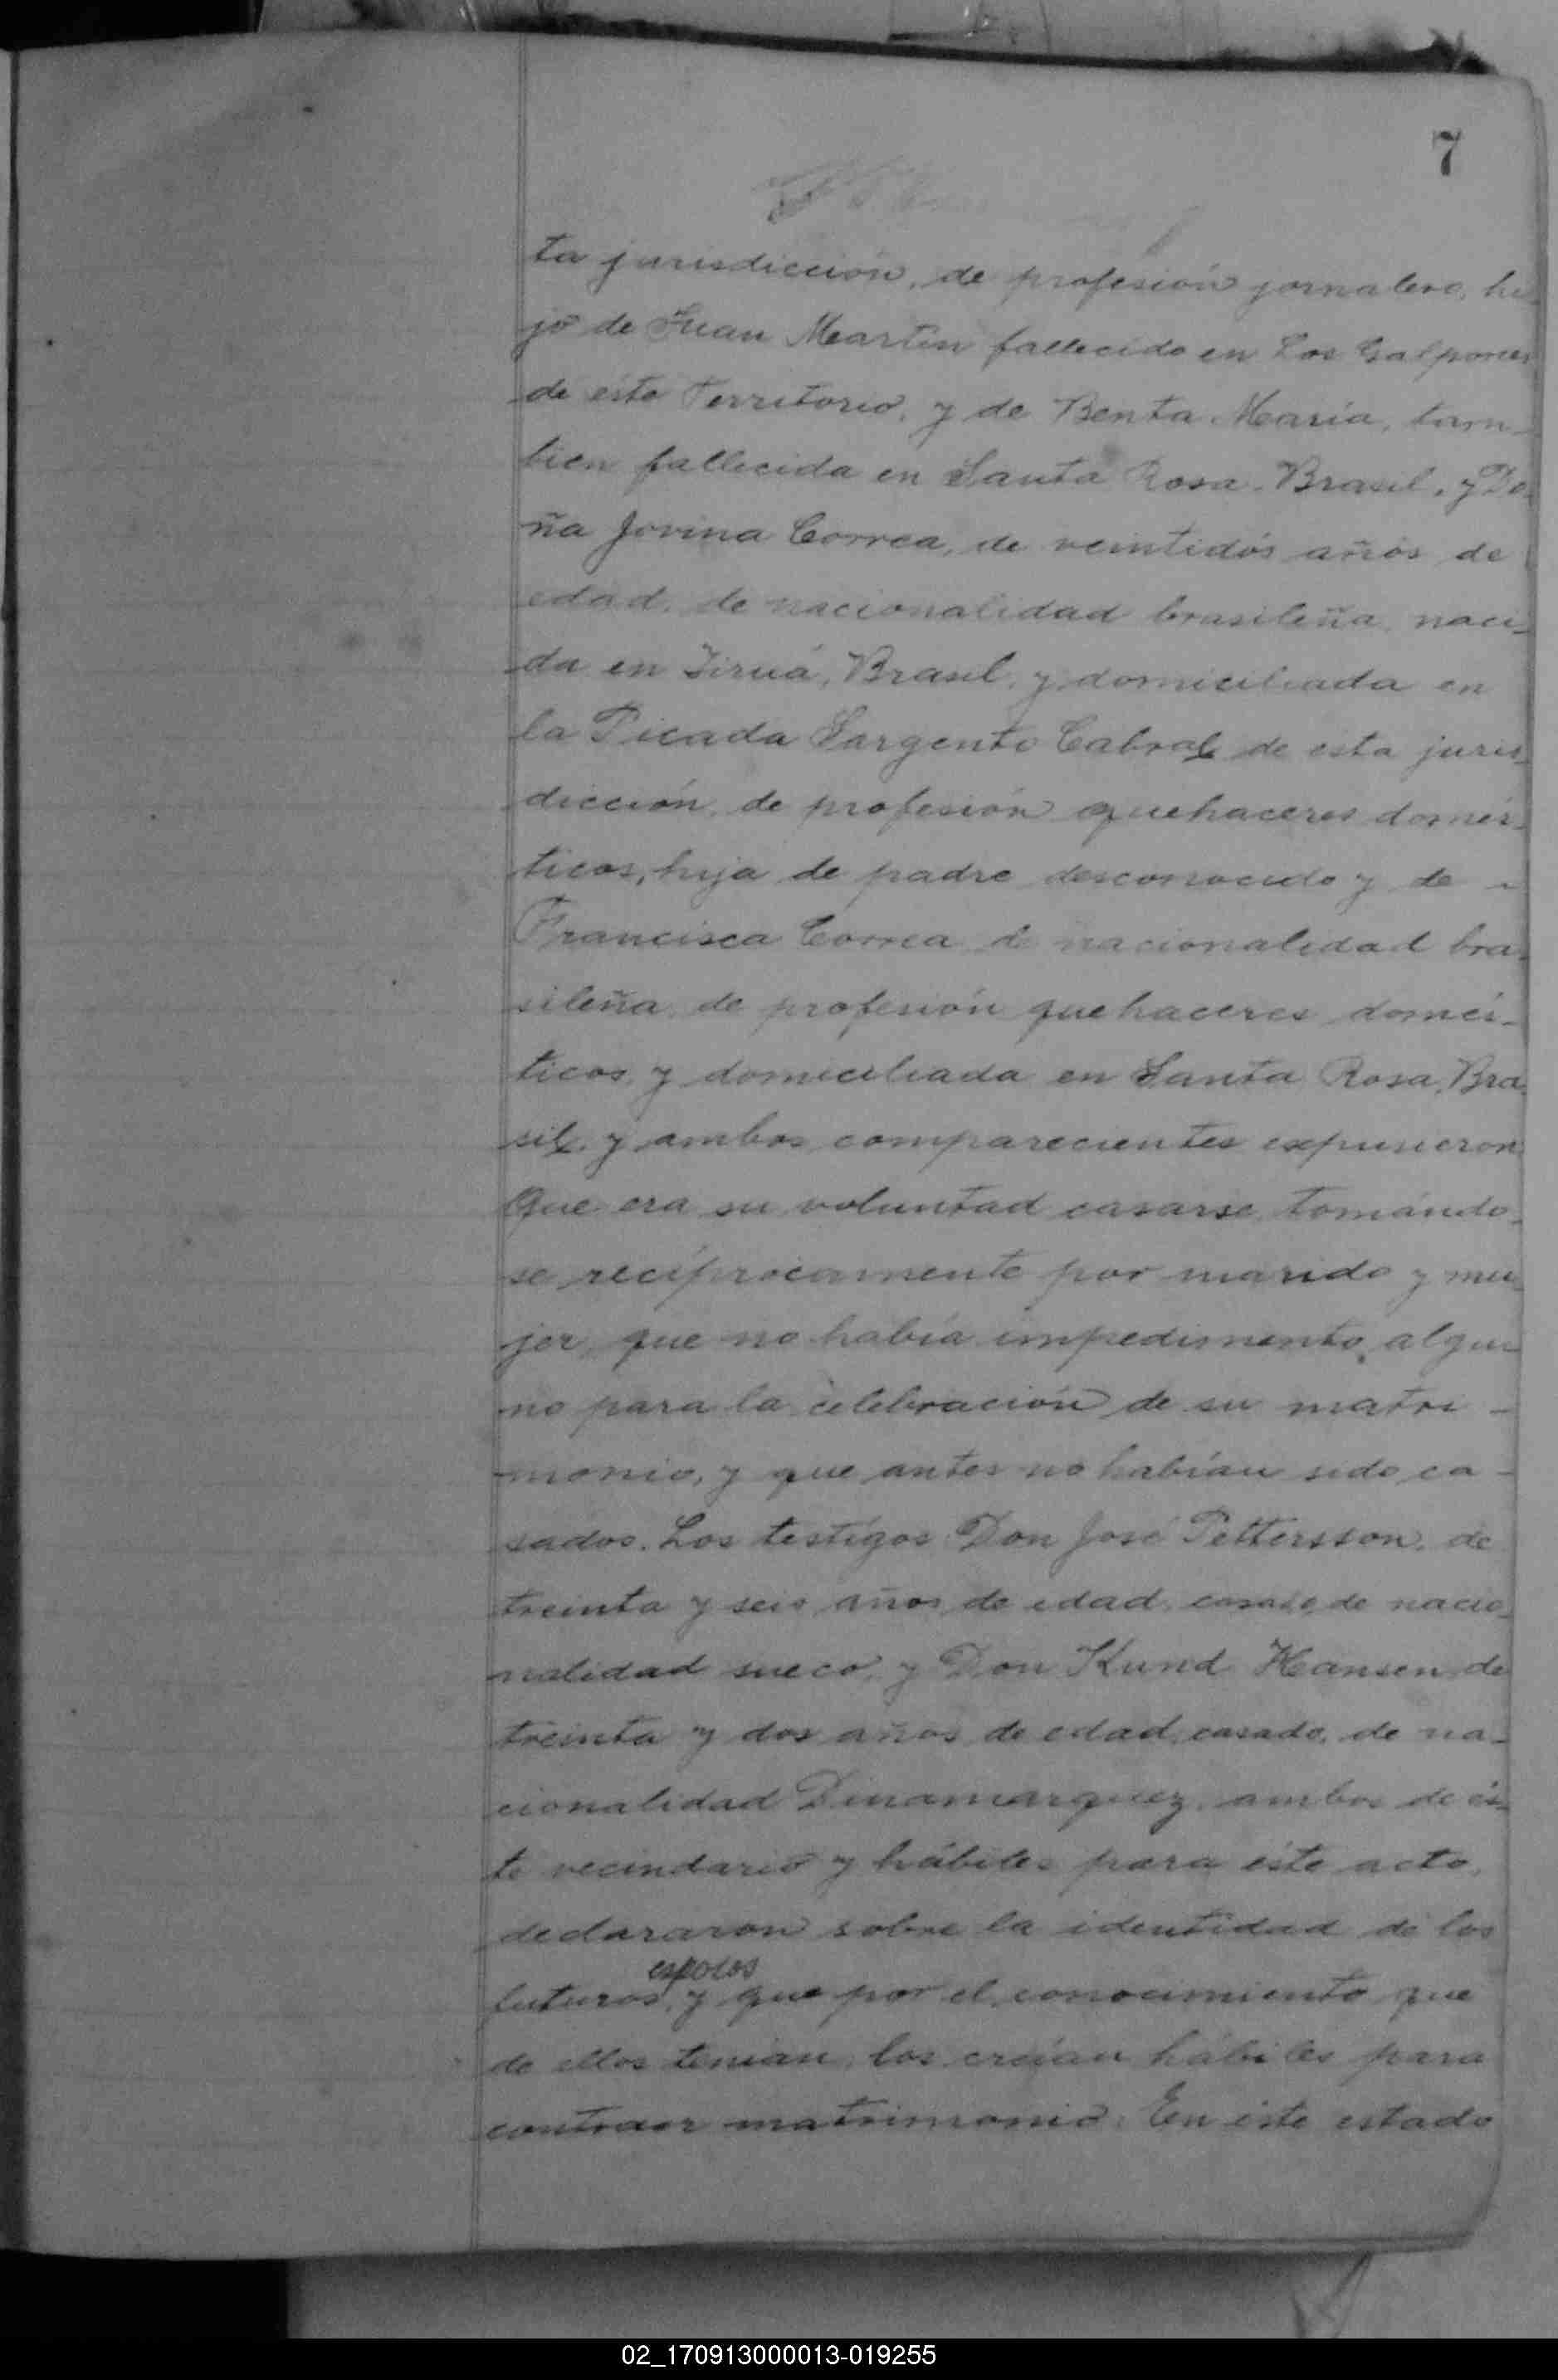 7
ta jurisdicción, de profesión jornalero, hi
jo de Juan Martin fallecido en Los Galpones
de este Territorio, y de Benta Maria, tam-
bien fallecida en Santa Rosa. Brasil, y Do
ña Jovina Correa, de veintidós años de
edad, de nacionalidad brasileña, naci-
da en Tiruá, Brasil, y domiciliada en
la Picada Sargento Cabral de esta juris-
dicción, de profesión quehaceres domés-
ticos, hija de padre desconocido y de -
Francisca Correa de nacionalidad bra-
sileña, de profesión quehaceres domés-
ticos y domiciliada en Santa Rosa, Bra
sil, y ambos comparecientes expusieron
Que era su voluntad casarse, tomándo-
se recíprocamente por marido y mu
jer, que no había impedimento algu
no para la celebración de su matri -
monio, y que antes no habían sido ca -
sados. Los testigos Don José Pettersson, de
treinta y seis años de edad, casado, de nacio
nalidad sueco, y Don Kund Hansen, de
treinta y dos años de edad, casado, de na-
cionalidad Dinamarquez, ambos de és-
te vecindario y hábiles para éste acto,
declararon sobre la identidad de los
esposos
futuros, y que por el conocimiento que
de ellos tenían, los creían hábiles para
contraer matrimonio. En éste estado
02_170913000013-019255